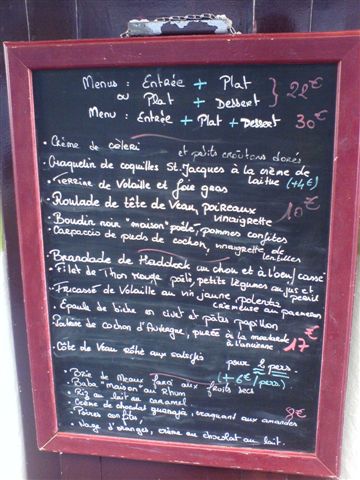 Menus : Entrée + Plat
ou Plat + Dessert } 22€
Menu : Entrée + Plat + Dessert 30€
• Crème de céleri et petits croûtons dorés
• Craquelin de coquilles St. Jacques à la crème de laitue (+4€)
• Terrine de Volaille et foie gras
• Roulade de tête de Veau, poireaux vinaigrette
10€
• Boudin noir "maison" poêlé, pommes confites
• Carpaccio de pieds de cochon, vinaigrette de lentilles
• Brandade de Haddock au chou et à l'oeuf cassé
• Filet de Thon rouge poêlé, petits légumes au jus et persil
• Fricassé de Volaille au vin jaune polenta crémeuse au parmesan
• Epaule de biche en civet et pâtes papillon
• Poitrine de cochon d'Auvergne, purée à la moutarde à l'ancienne
17€
• Côte de Veau rôtie aux salsifis pour 2 pers. (+6€/pers)
• Brie de Meaux farci aux fruits secs
• Baba "maison" au Rhum
• Riz au lait au caramel
• Crème de chocolat guanaja, craquant aux amandes
8€
• Poires confites
• Nage d'oranges, crème au chocolat au lait.